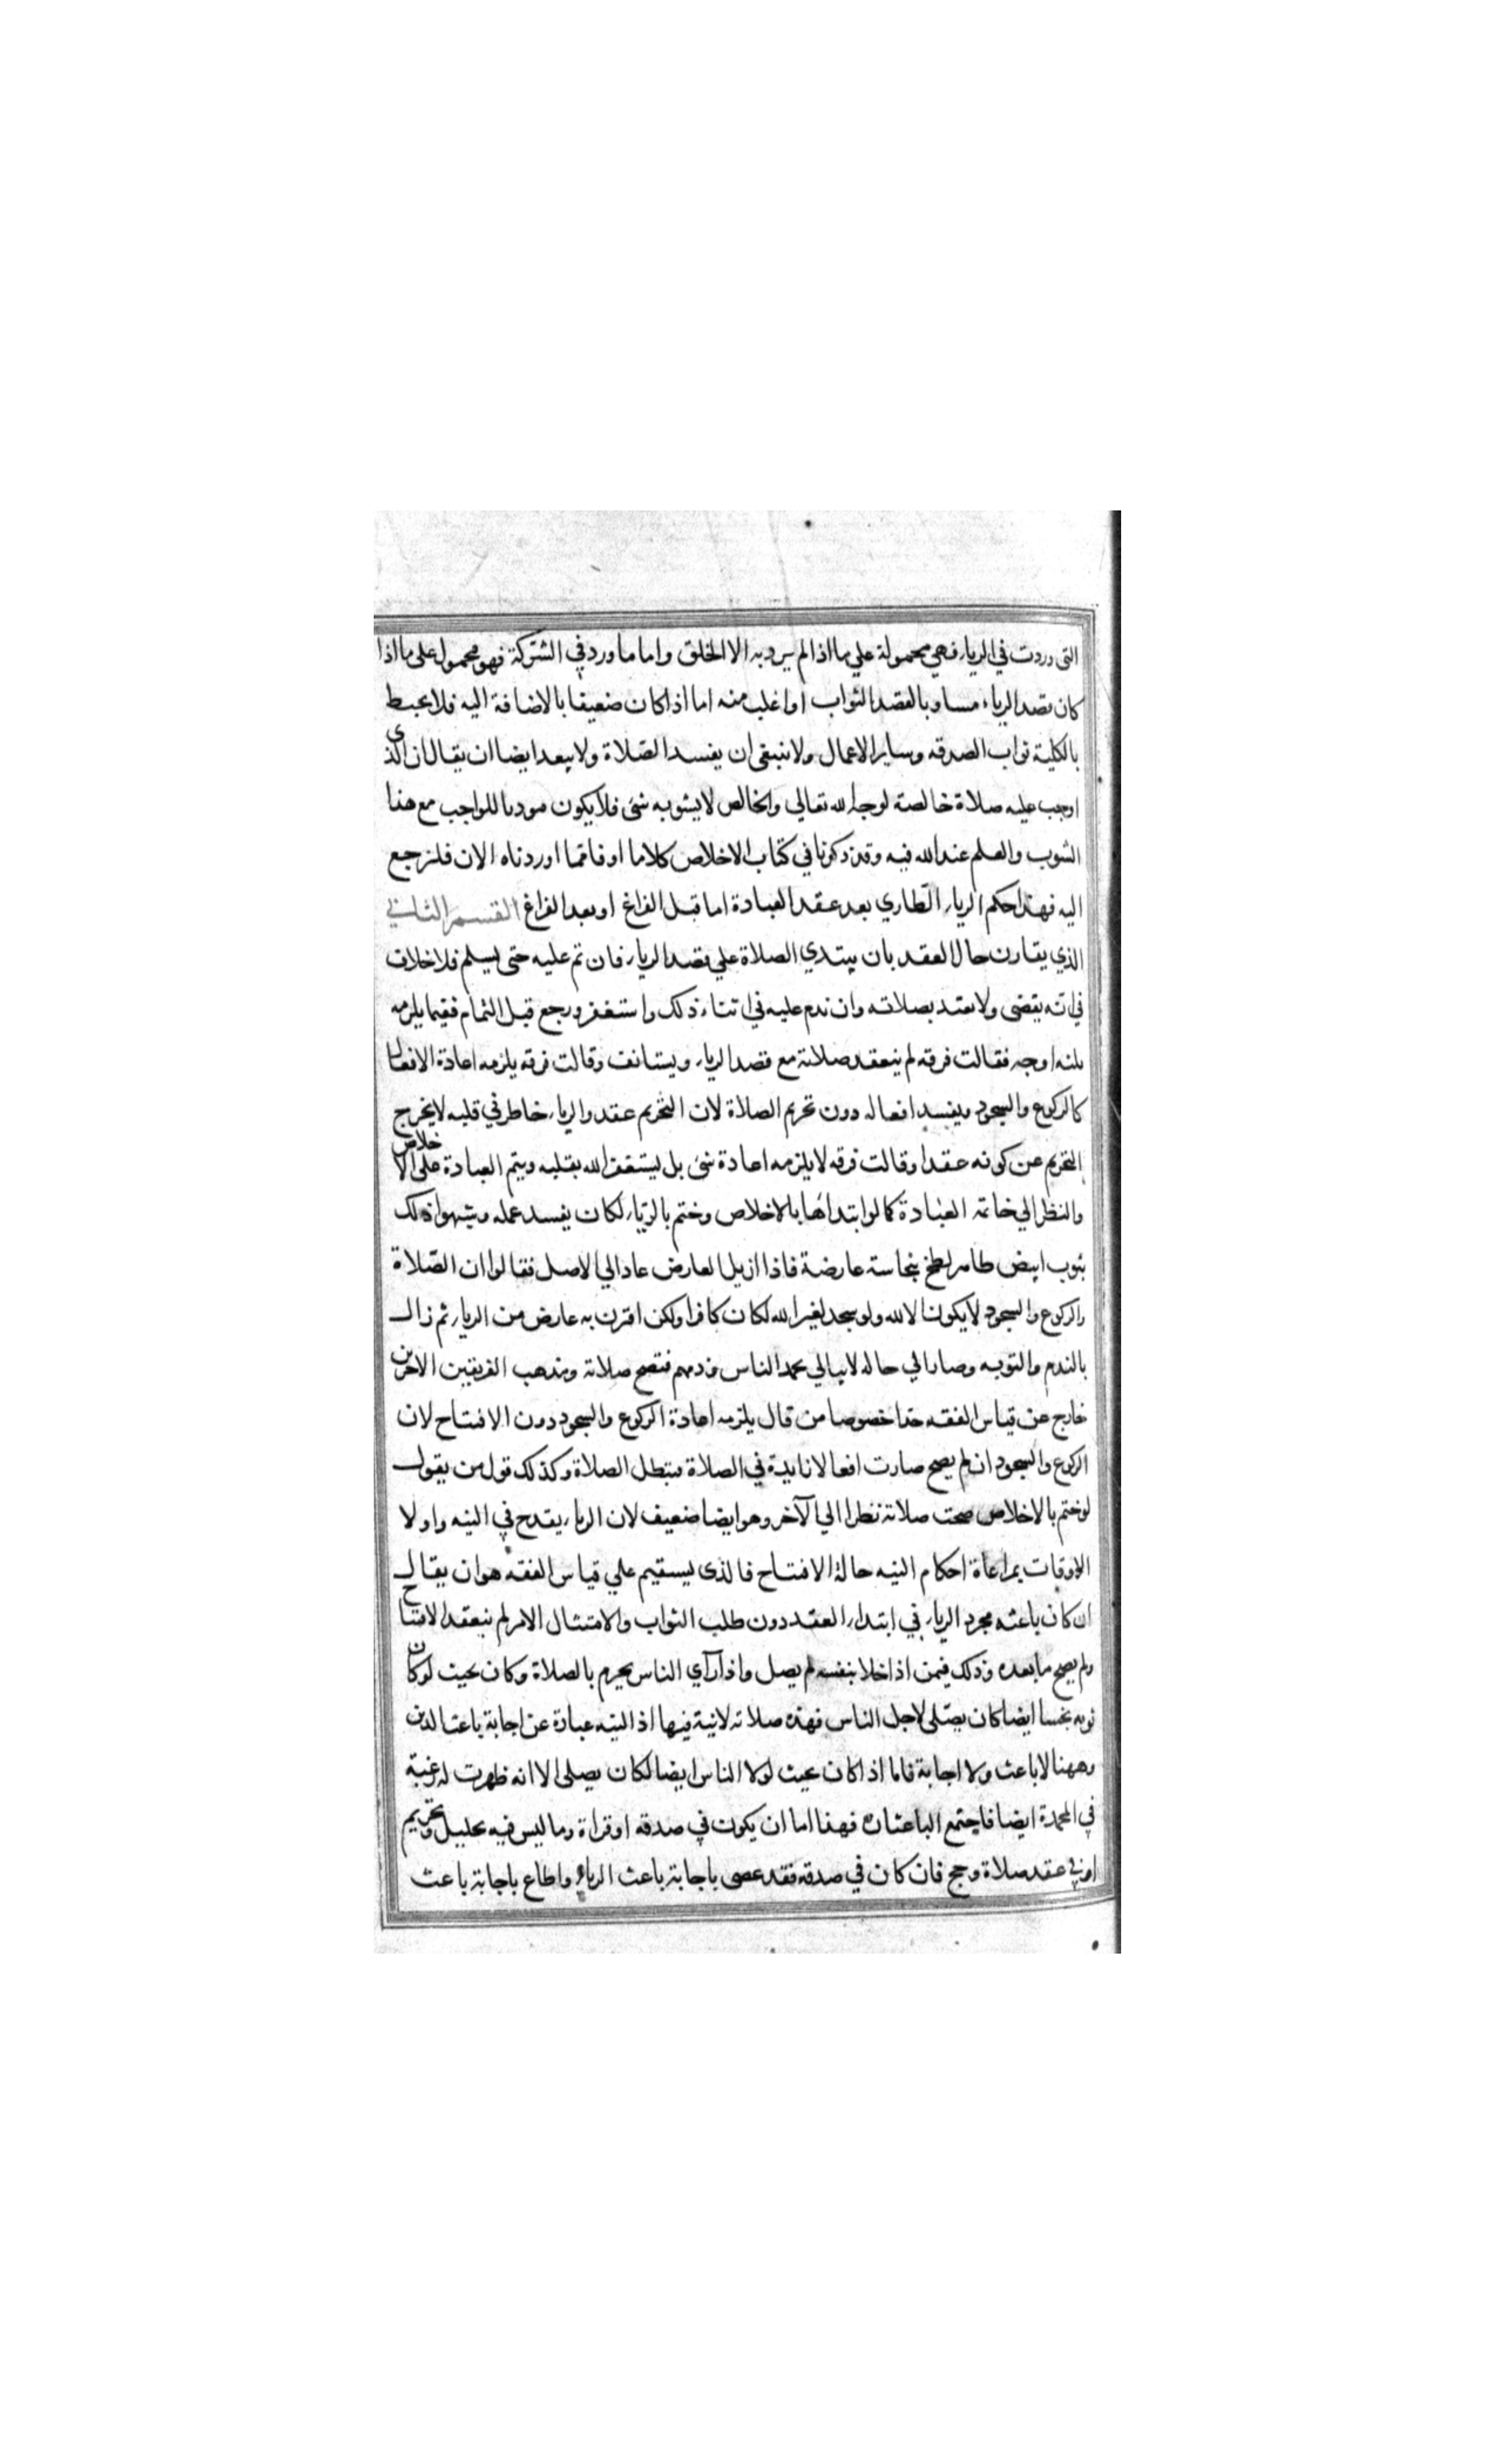 التى وردت في الرياء فهي محمولة علي ما اذا لم يرد به الا الخلق واما ما ورد في الشركة فهو محمول على ما اذا
كان قصد الرياء مساو بالقصد الثواب او اغلب منه اما اذا كان ضعيفا بالاضافة اليه فلا يحبط
بالكلية ثواب الصدقه وساير الاعمال ولا ينبغى ان يفسد الصلاة ولا يبعد ايضا ان يقال ان الذى
اوجب عليه صلاة خالصة لوجه الله تعالي والخالص لا يشوبه شئ فلا يكون موديا للواجب مع هذا
الشوب والعلم عند الله فيه وقد ذكرنا في كتاب الاخلاص كلاما اوفا مما اوردناه الان فلنرجع
اليه فهذا حكم الرياء الطاري بعد عقد العبادة اما قبل الفراغ او بعد الفراغ القسم الثاني
الذي يقارن حال العقد بان يبتدي الصلاة علي قصد الرياء فان تم عليه حتى يسلم فلا خلاف
في انه يقضى ولا يعتد بصلاته وان ندم عليه في اثناء ذلك واستغفر ورجع قبل التمام ففيما يلزمه
ثلثه اوجه فقالت فرقه لم ينعقد صلاته مع قصد الرياء ويستانف وقالت فرقه يلزمه اعادة الافعال
كالركوع والسجود ويفسد افعاله دون تحريم الصلاة لان التحريم عقد والرياء خاطر في قلبه لا يخرج
التحريم عن كونه عقدا وقالت فرقه لا يلزمه اعادة شئ بل يستغفر الله بقلبه ويتم العبادة على الاخلاص
والنظر الي خاتمة العبادة كما لو ابتداها بالاخلاص وختم بالرياء لكان يفسد عمله وشبهوا ذلك
بثوب ابيض طاهر لطخ بنجاسة عارضة فاذا ازيل العارض عاد الي الاصل فقالوا ان الصلاة
والركوع والسجود لا يكون الا لله ولو سجد لغير الله لكان كافرا ولكن اقترن به عارض من الرياء ثم زال
بالندم والتوبه وصار الي حاله لا يبالي بحمد الناس وذمهم فتصح صلاته ومذهب الفريقين الاخرين
خارج عن قياس الفقه جدا خصوصا من قال يلزمه اعادة الركوع والسجود دون الافتتاح لان
الركوع والسجود ان لم يصح صارت افعالا زايدة في الصلاة فتبطل الصلاة وكذلك قول من يقول
لو ختم بالاخلاص صحت صلاته نظرا الي الآخر وهو ايضا ضعيف لان الرياء يقدح في النيه واولا
الاوقات بمراعاة احكام النيه حالة الافتتاح فالذى يستقيم علي قياس الفقه هو ان يقال
ان كان باعثه مجرد الرياء في ابتداء العقد دون طلب الثواب والامتثال الامر لم ينعقد الافتتاح
ولم يصح ما بعده وذلك فيمن اذا خلا بنفسه لم يصل واذا رآي الناس يحرم بالصلاة وكان بحيث لو كان
ثوبه نجسا ايضا كان يصلى لاجل الناس فهذه صلاته لا نية فيها اذ النيه عبادة عن اجابة باعث الدين
وههنا لا باعث ولا اجابة فاما اذا كان بحيث لولا الناس ايضا لكان يصلى الا انه ظهرت له رغبة
في المحمدة ايضا فاجتمع الباعثان فهذا اما ان يكون في صدقه او قراة وما ليس فيه تحليل وتحريم
او في عقد صلاة وحج فان كان في صدقه فقد عصى باجابة باعث الرياء واطاع باجابة باعث